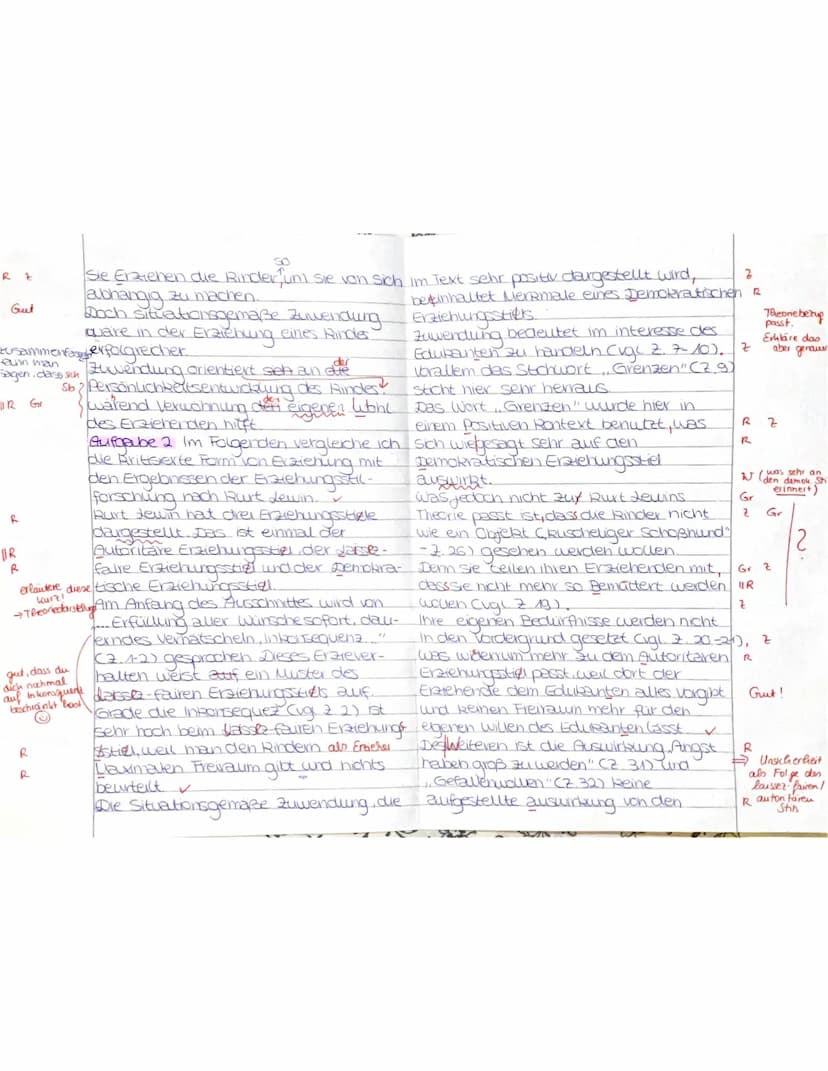 so
Sie Erziehen die Kinder, um sie von sich
abhängig zu machen.
Doch situationsgemäße Zuwendung
wäre in der Erziehung eines Kindes
erfolgreicher.
Zuwendung orientiert sich an die
der
Persönlichkeitsentwicklung des Kindes.
wärend Verwöhnung den eigenen Wohl
der
des Erzieherden hilft.
Aufgabe 2 Im Folgenden vergleiche ich
die Kritisierte Form von Erziehung mit
den Ergebnissen der Erziehungsstil-
forschung nach Kurt Lewin. ✓
Kurt Lewin hat drei Erziehungsstiele
dargestellt. Das ist einmal der
Autoritäre Erziehungsstiel, der Laisse-
faire Erziehungsstiel und der Demokra-
tische Erziehungsstiel.
Am Anfang des Ausschnittes wird von
"... Erfüllung aller Wünsche sofort, dau-
erndes Verhätscheln, Inkonsequenz..."
(Z. 1-2) gesprochen Dieses Erziever-
halten weist auf ein Muster des
Laissez-fairen Erziehungsstiels auf.
Grade die Inkonsequez (vgl. Z 2) ist
sehr hoch beim Lassez fairen Erziehungs
stiel, weil man den Kindern als Erzieher
Maximalen Freiraum gibt und nichts
beurteilt ✓
Die Situationsgemäße Zuwendung, die
R Z
Gut
zusammenfassend
kann man
sagen, dass sich
Sb
IIR Gr
R
IIR
R
erläutere diese
kurz!
→Theoriedarstellung
gut, dass du
dich nochmal
auf Inkonsequenz
beschränkt hast
☺
R
R
im Text sehr positiv dargestellt wird,
beinhaltet Merkmale eines Demokratischen
Erziehungsstiels.
Zuwendung bedeutet im interesse des
Edukanten zu handeln (vgl. Z. 7-10).
Vorallem das Stichwort "Grenzen" (Z.9)
sticht hier sehr herraus
Das Wort "Grenzen" wurde hier in
einem Positiven Kontext benutzt, was
sich wiegesagt sehr auf den
Demokratischen Erziehungsstiel
auswirkt.
Was jedoch nicht zur Kurt Lewins
Theorie passt ist, dass die Kinder nicht
wie ein Objekt ("kuscheliger Schoßhund"
- Z. 26) gesehen werden wollen.
Denn sie teilen ihren Erziehenden mit,
dass sie nicht mehr so Bemuttert werden
wollen (vgl. Z 19).
Ihre eigenen Bedürfnisse werden nicht
in den Vordergrund gesetzt (vgl. Z. 20-21),
was widerum mehr zu dem Autoritären
Erziehungsstiel passt, weil dort der
Erziehende dem Edukanten alles vorgibt
und keinen Freiraum mehr für den
eigenen willen des Edukanten lässt ✓
Des Weiteren ist die Auswirkung "Angst
haben groß zu werden" (Z. 31) und
"Gefallenwollen" (Z 32) keine
aufgestellte auswirkung von den
Z
R
Theoriebezug
passt.
Erkläre das
aber genauer
Z
R Z
R
W (was sehr an
den demok. Stil
erinnert)
Gr
Z Gr
?
Gr Z
IIR
Z
Z
R
Gut!
R
⇒ Unsicherheit
als Folge des
laissez-fairen/
R autoritären
Stils